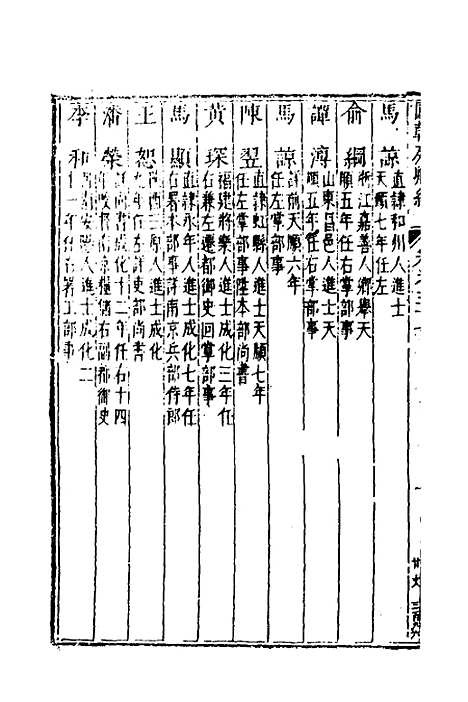 馬諒 直隸和州人進士
天順七年任左
俞綱 浙江嘉善人鄉舉天
順五年任右掌部事
譚溥 山東昌邑人進士天
順五年任右掌部事
馬諒 詳前天順六年
任左掌部事
陳翌 直隸虹縣人進士天順七年
任左掌部事陞本部尚書
黃琛 福建將樂人進士成化三年任
右兼左遷都御史回掌部事
馬顯 直隸永年人進士成化七年任
右署本部事詳南京兵部侍郎
王恕 陝西三原人進士成化
年任左詳吏部尚書
潘榮 詳尚書成化十二年任右十四
年改督南京糧儲右副都御史
李和 安陸人進士成化二
十一年任右署工部事